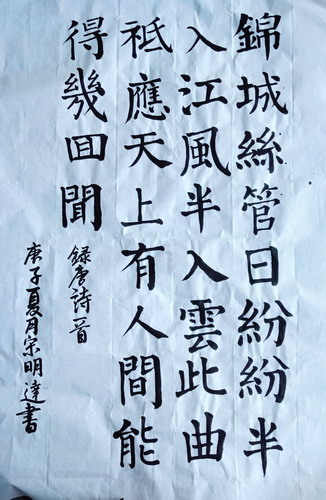 錦城絲管日紛紛半
入江風半入雲此曲
祗應天上有人間能
得幾回聞
錄唐詩一首
庚子夏月宗明達書